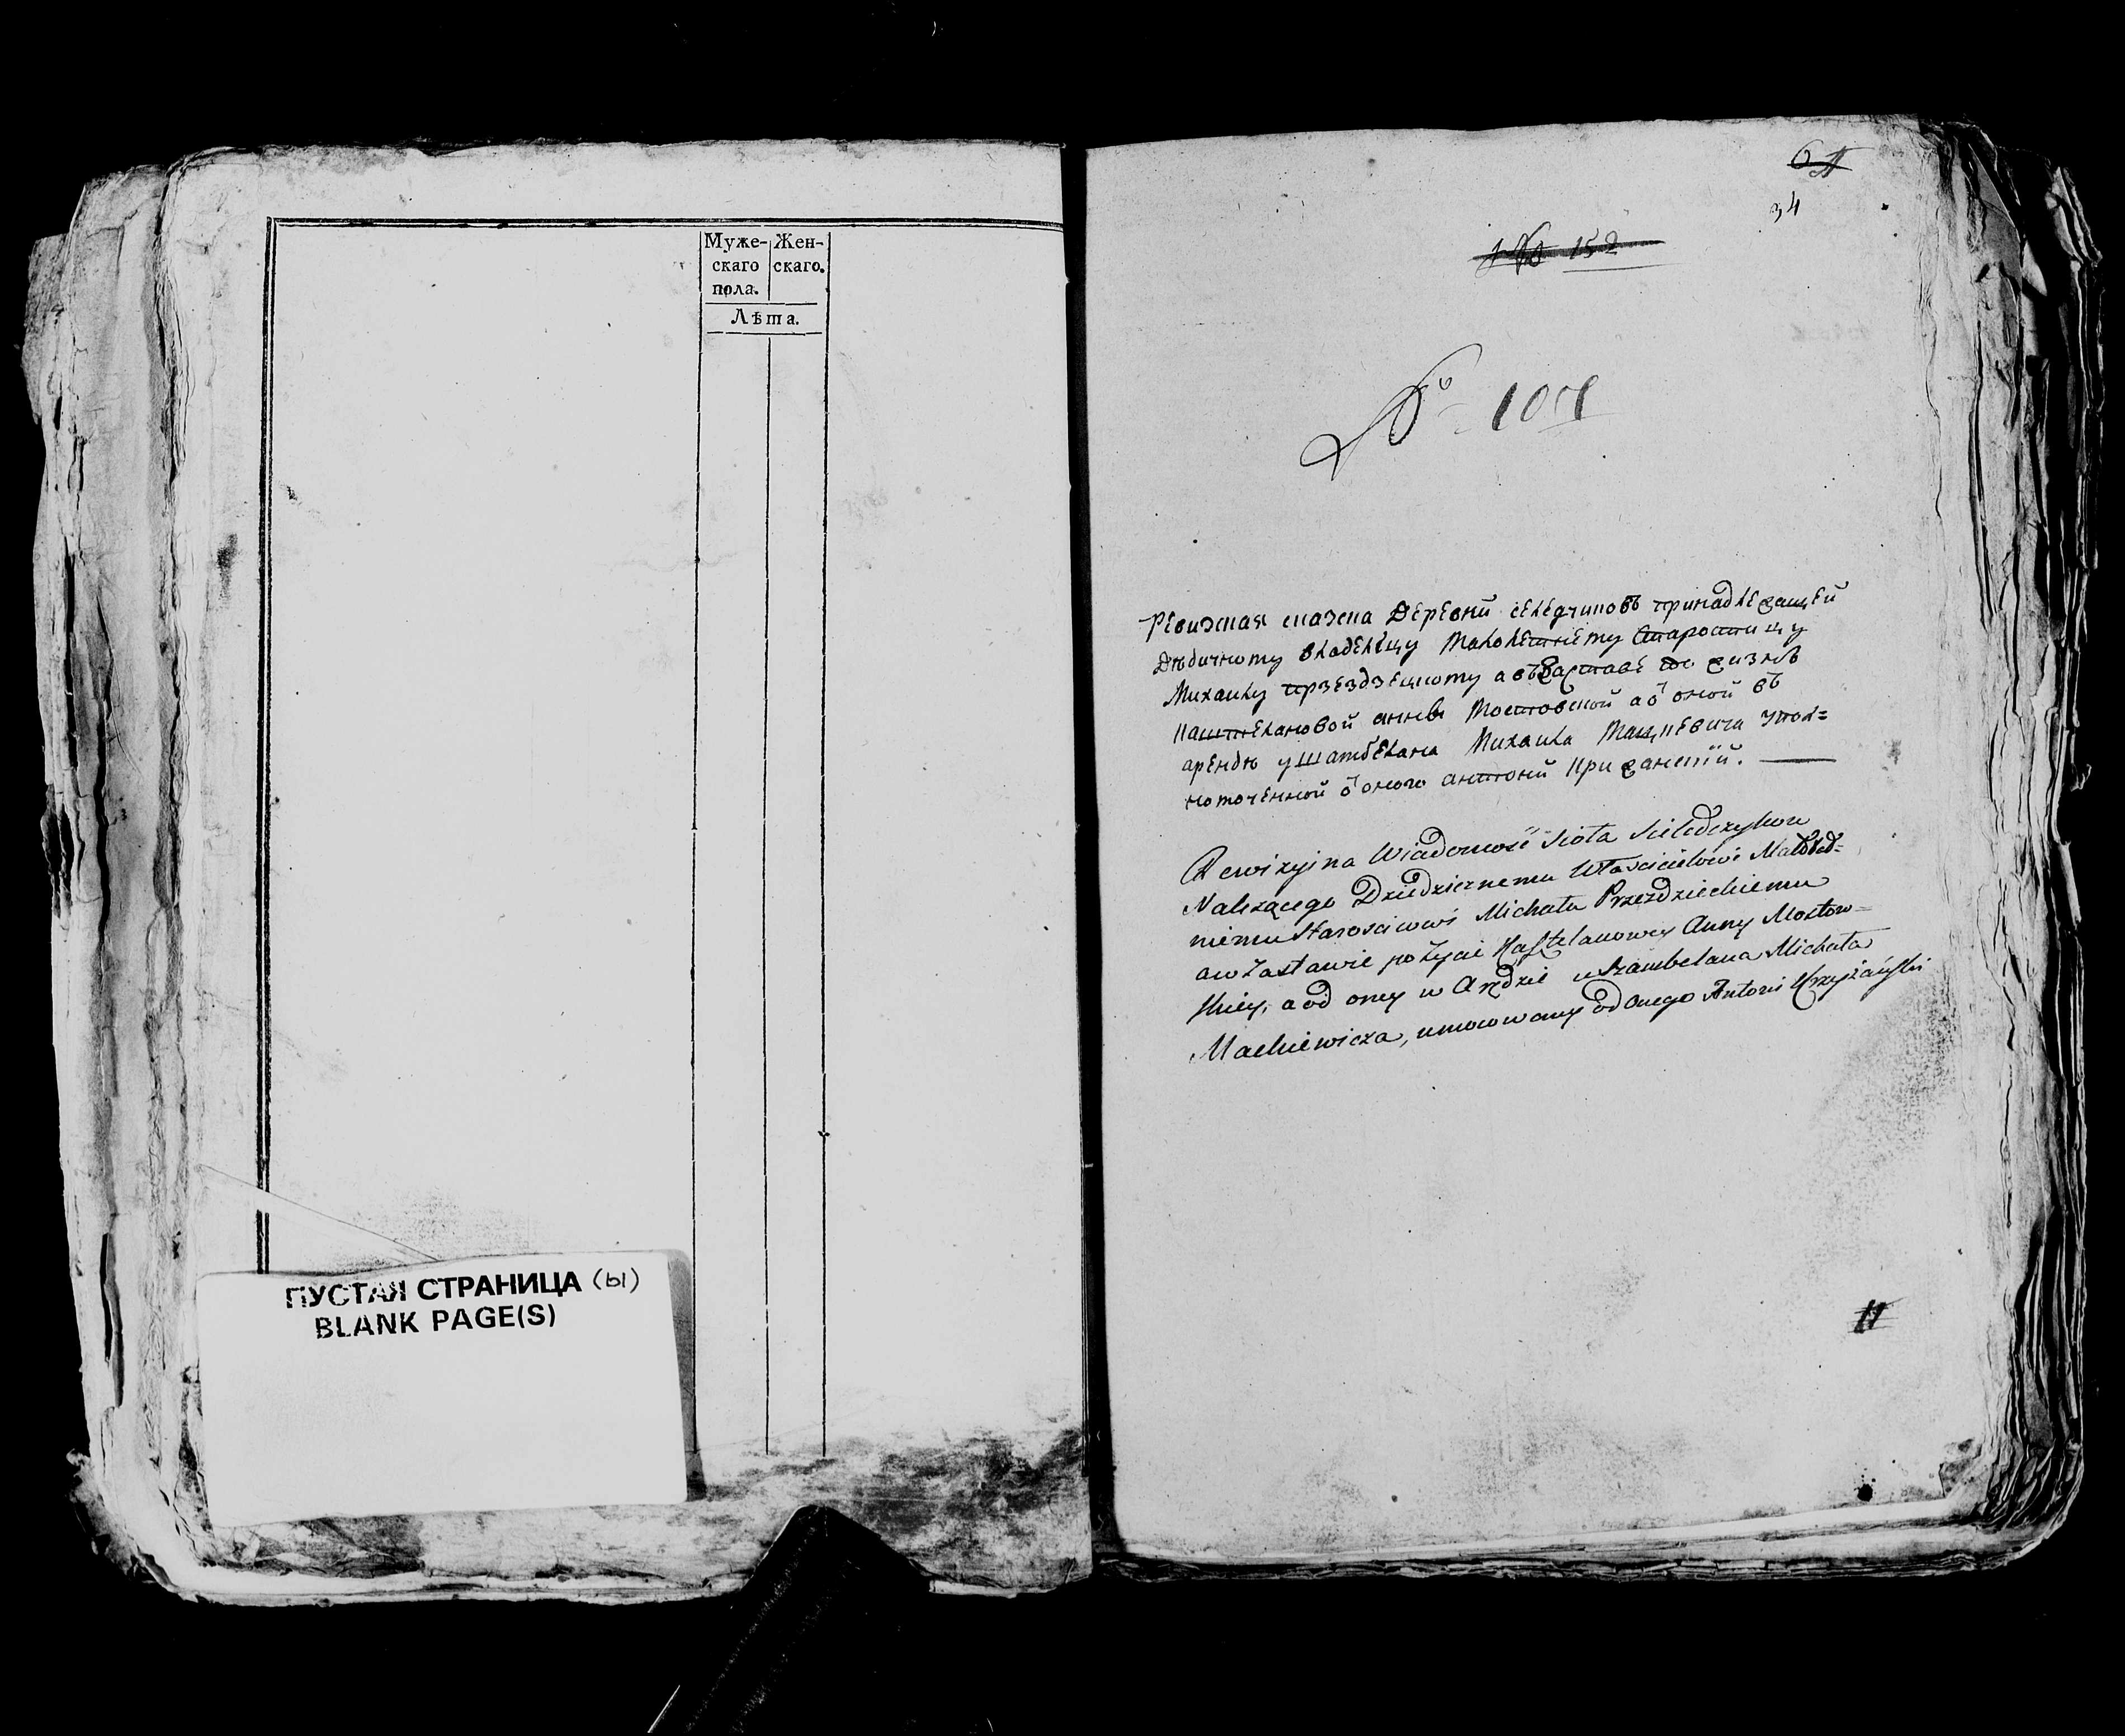 Муже- Жен-
скаго скаго.
пола.
Лѣта.
ПУСТАЯ СТРАНИЦА (ы)
BLANK PAGE(S)
34
№ 152
№ 107
Ревизская сказка деревни селедчиковъ принадлежащей
дѣдичному владелцу малолетнему старостицу
Михаилу Прзездзецкому а въ заставе по жизнь
каштелановой анне Мостовской а от оной въ
арендѣ у шамбелана Михаила Мацкевича упол=
номоченной от оного антоний Крижанский.
Rewizyjna Wiadomość Sioła Sieledczykow
Należącego Dziedzicznemu Właścicielowi Małolet=
niemu Starościcowi Michału Przezdzieckiemu
a w Zastawie po Życie Kasztelanowey Anny Mostow=
skiey, a od oney w Arędzie u Szambelana Michała
Mackiewicza, umocowany od onego Antoni Krzyżański
11